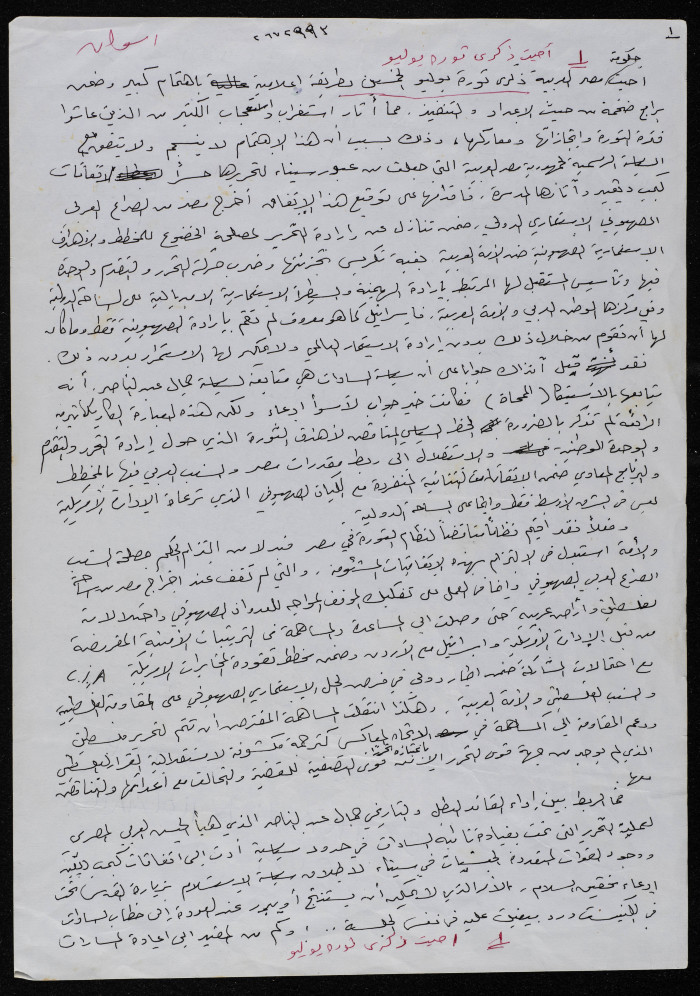 ١
٢٦٧٢٩٩٣
اسوان
حكومة
1 أحيت ذكرى ثورة يوليو
أحيت مصر العربية ذكرى ثورة يوليو الخمسين بطريقة إعلامية باهتمام كبير وضمن
برامج ضخمة من حيث الإعداد والتنفيذ. مما أثار استغراب واستعجاب الكثير من الذين عاشوا
فترة الثورة وإنجازاتها ومعاركها، وذلك بسبب أن هذا الاهتمام لا ينسجم ولا يتفق مع
السياسة الرسمية لجمهورية مصر العربية التي جعلت من عبور سيناء لتحريرها جسراً لاتفاقات
كامب ديفيد وآثارها المدمرة. فإقدامها على توقيع هذا الاتفاق أخرج مصر من الصراع العربي
الصهيوني الاستعماري الدولي. ضمن تنازل عن إرادة التحرير لمصلحة الخضوع للمخطط والأهداف
الاستعمارية الصهيونية ضد الأمة العربية بغية تكريس تجزئتها وضرب حركة التحرر والتقدم والوحدة
فيها وتأسيس المستقبل لها المرتبط بإرادة الهيمنة والسيطرة الاستعمارية الامبريالية على الساحة الدولية
وفي مركزها الوطن العربي والأمة العربية. فإسرائيل كما هو معروف لم تقم بإرادة الصهيونية فقط وما كان
لها أن تقوم من خلال ذلك بدون إرادة الاستعمار العالمي ولا يمكن لها الاستمرار بدون ذلك.
فقد قيل آنذاك جواباً على أن سياسة السادات هي متابعة لسياسة جمال عبد الناصر. أنه
يتابعها بالاستيكا (الممحاة) فكانت خير جواب لأسوأ ادعاء ولكن هذه العبارة الكاريكاتيرية
الرائعة لم تذكر بالضرورة الخط السياسي المناقض لأهداف الثورة الذي حول إرادة التحرر والتقدم
والوحدة الوطنية والاستقلال الى ربط مقدرات مصر والشعب العربي فيها بالمخطط
والبرنامج المعادي ضمن الاتفاقات الثنائية المنفردة مع الكيان الصهيوني الذي ترعاه الإدارات الأمريكية
ليس في الشرق الأوسط فقط وإنما على الساحة الدولية.
وفعلاً فقد أقيم نظاماً مناقضاً لنظام الثورة في مصر فبدلا من التزام الحكم بمصلحة الشعب
والأمة استبدل في الالتزام بهذه الاتفاقيات المشئومة. والتي لم تقف عند إخراج مصر من ساحة
الصراع العربي الصهيوني وإنما في العمل على تفكيك الموقف المواجه للعدوان الصهيوني واحتلالاته
لفلسطين وأراض عربية حتى وصلت الى المساعدة والمساهمة في الترتيبات الأمنية المفروضة
من قبل الإدارات الأمريكية واسرائيل مع الأردن وضمن مخطط تقوده المخابرات الأمريكية C.I.A
مع احتمالات المشاركة ضمن إطار دولي في فرض الحل الاستعماري الصهيوني على المقاومة الفلسطينية
والشعب الفلسطيني والأمة العربية. وهكذا انتقلت المساهمة المفترض أن تتم لتحرير فلسطين
ودعم المقاومة إلى المساهمة في الاتجاه المعاكس كترجمة مكشوفة لاستقلالية القرار الفلسطيني
الذي لم يوجد من جهة قوى التحرر إلا باعتباره قوى التصفية للقضية والتحالف مع أعدائها والمتناقضة
معها.
فما الربط بين إداء القائد البطل والتاريخي جمال عبد الناصر الذي هيأ الجيش العربي المصري
لعملية التحرير التي تمت بقيادة نائبه السادات في حدود سياسية أدت إلى اتفاقات كامب ديفيد
ووجود القوات المتعددة الجنسيات في سيناء لإطلاق سياسة الاستسلام بزيارة القدس تحت
ادعاء تحقيق السلام. الأمر الذي لا يمكن أن يستنتج أو يبرر عند العودة إلى خطاب السادات
في الكنيست ورد بيغن عليه في نفس الجلسة ... وكم من المفيد الى إعادة المسارات
1 احيت ذكرى ثورة يوليو